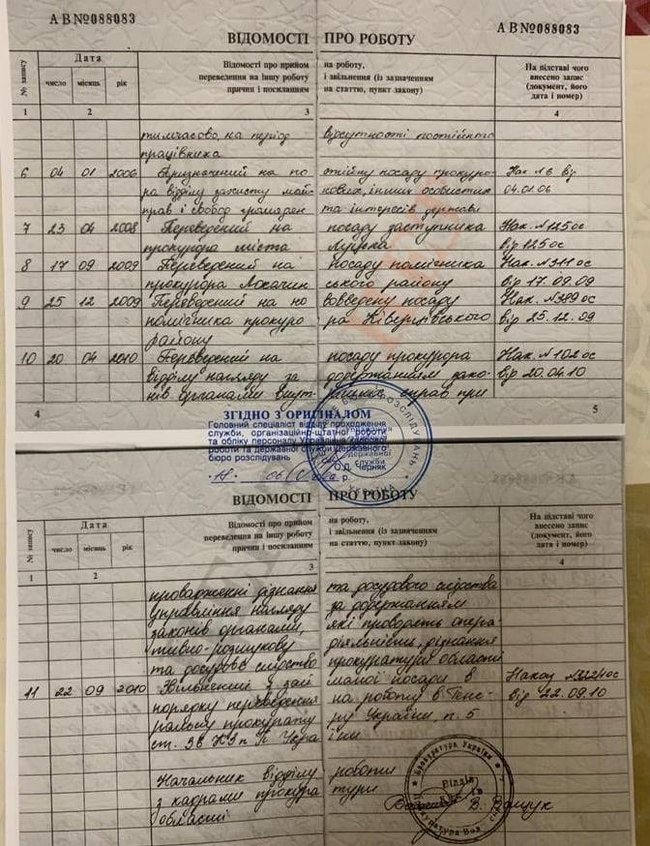 АВ№088083
АВ№088083
ВІДОМОСТІ ПРО РОБОТУ
№ запису
Дата
Відомості про прийом на роботу,
переведення на іншу роботу і звільнення (із зазначенням
причин і посиланням на статтю, пункт закону)
На підставі чого
внесено запис
(документ, його
дата і номер)
число місяць рік
1 2 3 4
тимчасово, на період відсутності постійного
працівника
6 04 01 2006 Призначений на постійну посаду прокуро- Нак. №6 від
ра відділу захисту май- нових, інших особистих 04.01.06
прав і свобод громадян та інтересів держави
7 23 04 2008 Переведений на посаду заступника Нак. №125ос
прокурора міста Луцька від 125ос
8 17 09 2009 Переведений на посаду помічника Нак. №311ос
прокурора Локачин ського району від 17.09.09
9 25 12 2009 Переведений на но вовведену посаду Нак. №399ос
помічника прокуро ра Ківерцівського від 25.12.09
району
10 20 04 2010 Переведений на посаду прокурора Нак. №102ос
відділу нагляду за додержанням зако- від 20.04.10
нів органами внут- рішніх справ при
4 5
ЗГІДНО З ОРИГІНАЛОМ
Головний спеціаліст відділу проходження
служби, організаційно-штатної роботи
та обліку персоналу Управління кадрової
роботи та державної служби Державного
бюро розслідувань
О.Д. Черняк
р.
ВІДОМОСТІ ПРО РОБОТУ
№ запису
Дата
Відомості про прийом на роботу,
переведення на іншу роботу і звільнення (із зазначенням
причин і посиланням на статтю, пункт закону)
На підставі чого
внесено запис
(документ, його
дата і номер)
число місяць рік
1 2 3 4
провадженні дізнання та досудового слідства
управління нагляду за додержанням
законів органами, які проводять опера
тивно-розшукову діяльність, дізнання
та досудове слідство прокуратури області
11 22 09 2010 Звільнений з зай маної посади в Наказ №322ос
порядку переведення на роботу в Гене- від 22.09.10
ральну прокуратуру України п. 5
ст. 36 КЗпП Укра їни
Начальник відділу роботи
з кадрами прокура тури
області В. Ващук
Прокуратура України
Відділ